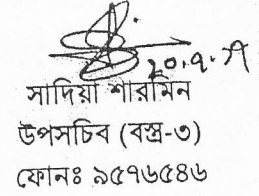 ২০.৭.১৭
সাদিয়া শারমিন
উপসচিব (বস্ত্র-৩)
ফোনঃ ৯৫৭৬৫৪৬